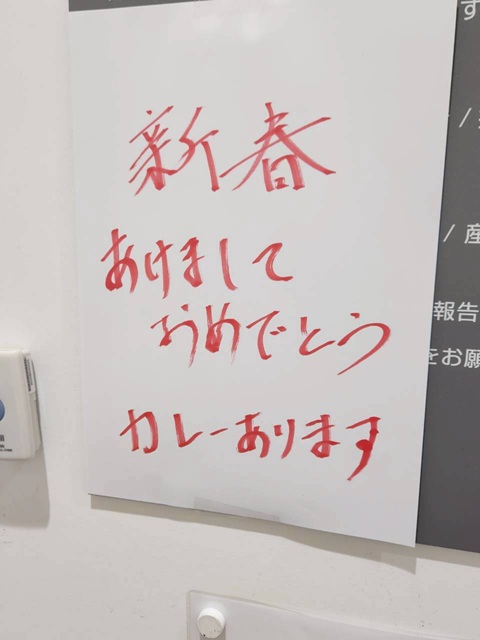 新春
あけまして
おめでとう
カレーあります
す
/ 産
報告
をお願